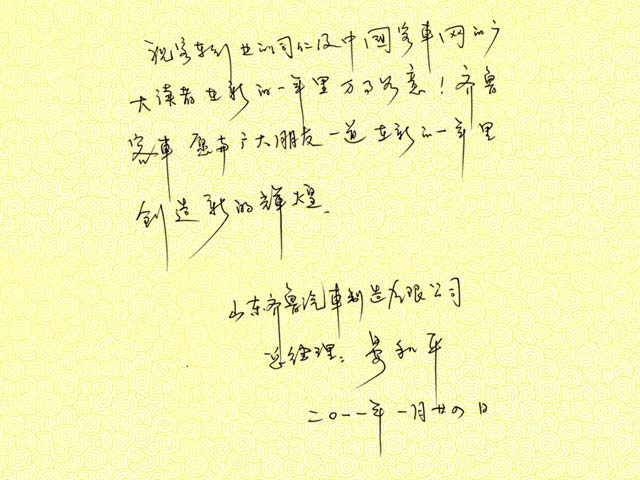 祝客车业的同仁及中國客車网的广
大读者在新的一年里万事如意！齐鲁
客車愿与广大朋友一道在新的一年里
创造新的辉煌.
山东齐鲁汽車制造有限公司
总经理：和平
二〇一一年一月廿四日